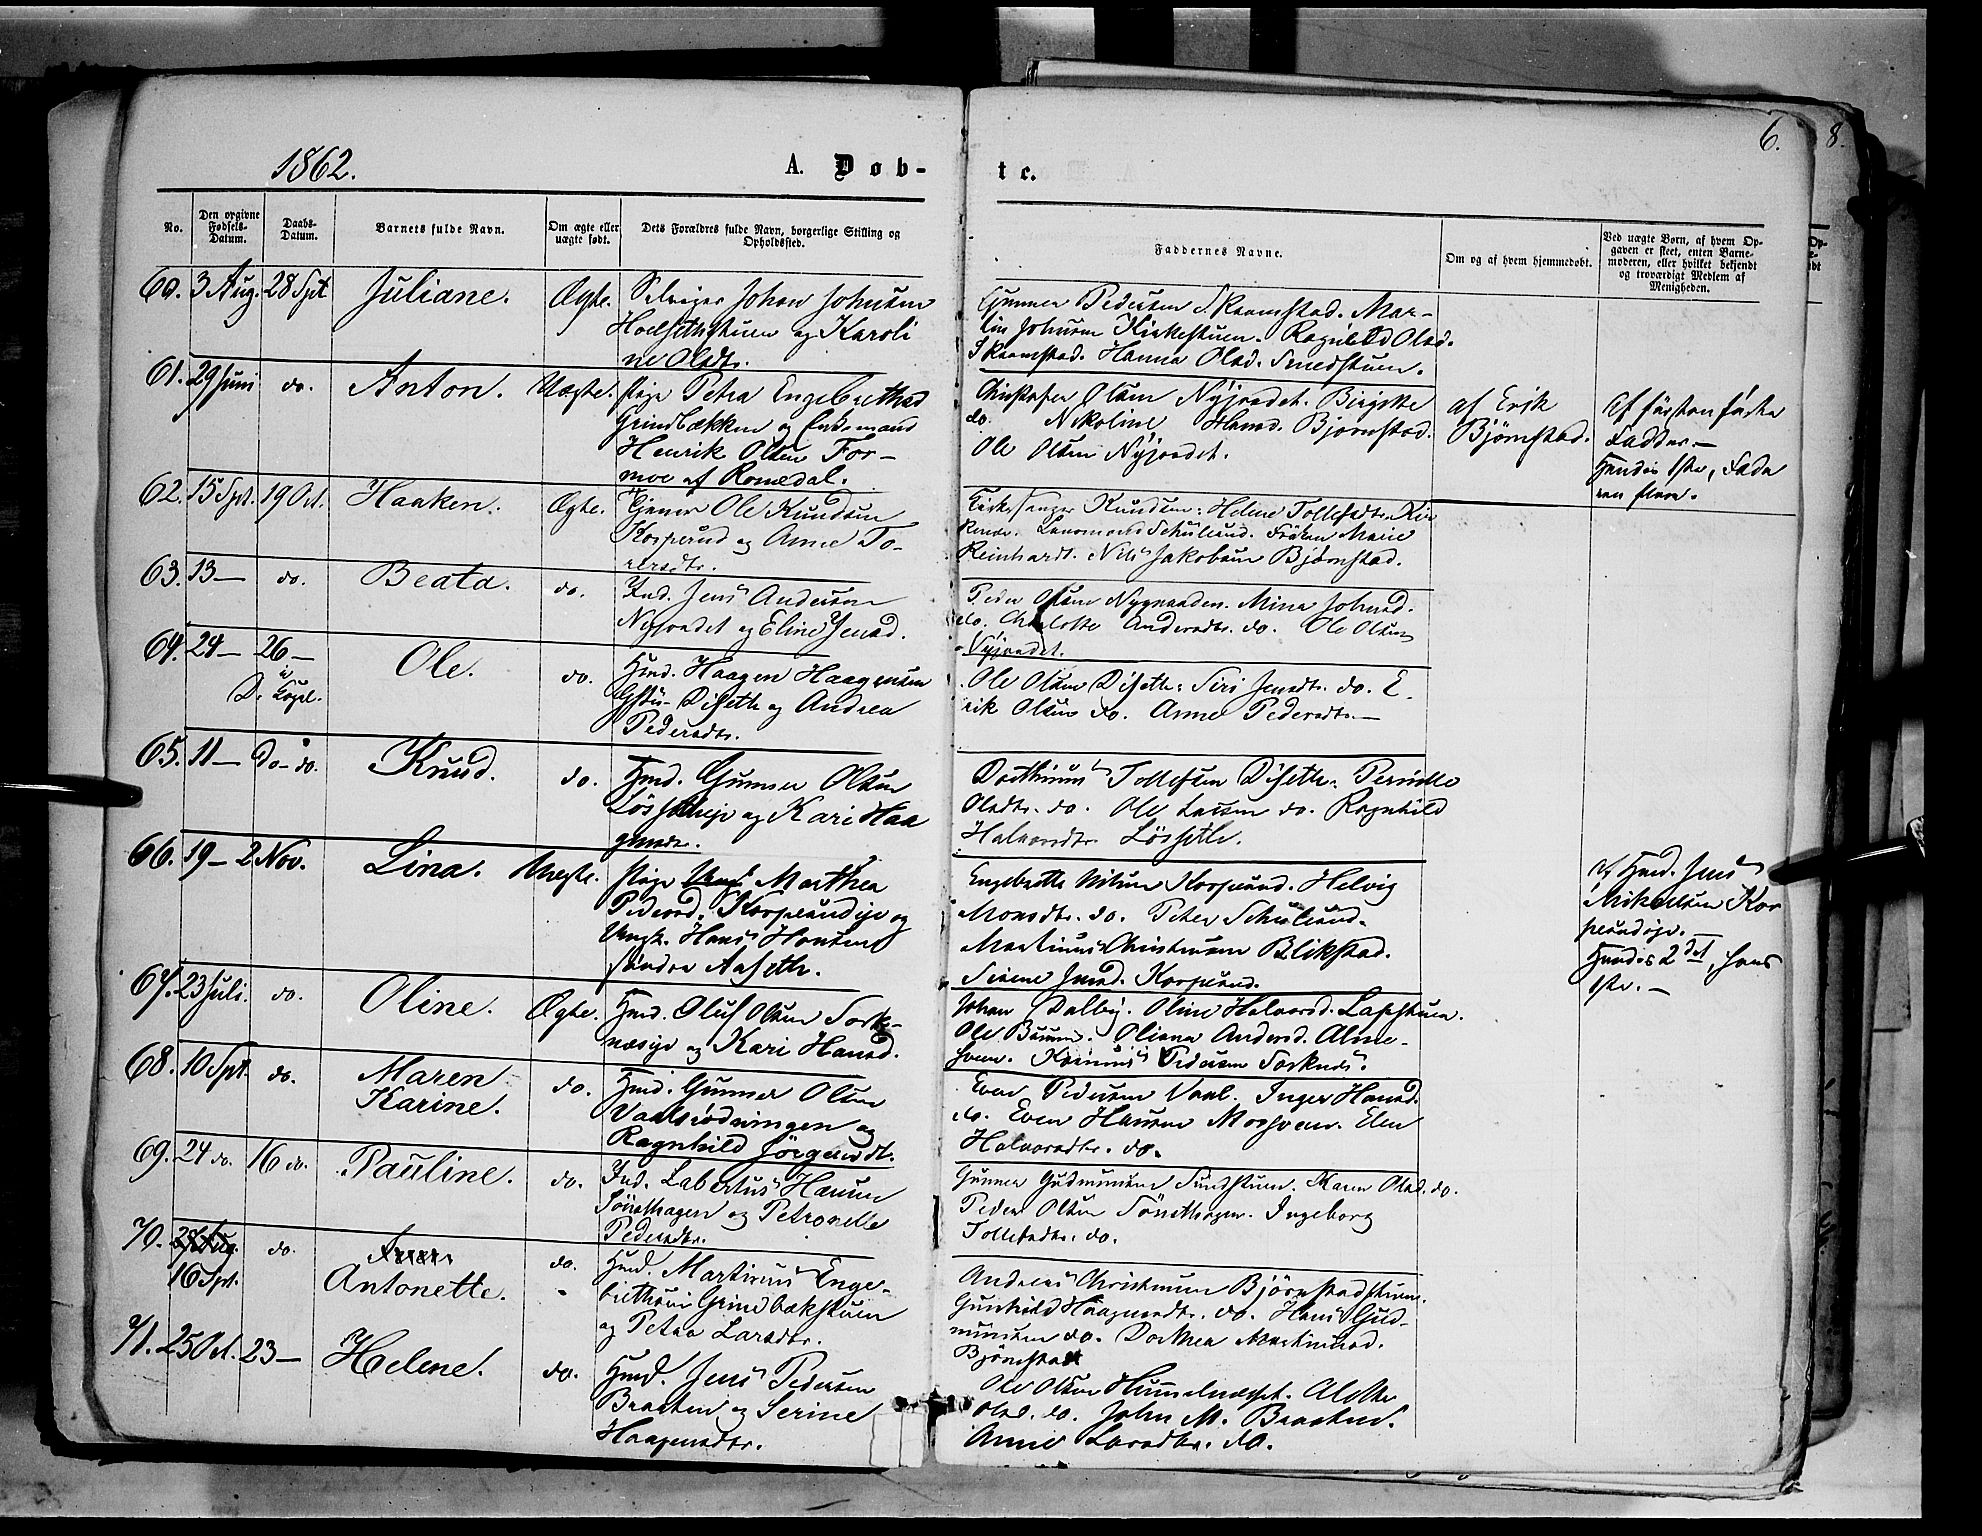 6. 8.
1862. A. Døb- te.
No.
Den opgivne Fødsels-Datum.
Daabs-Datum.
Barnets fulde Navn.
Om ægte eller uægte født.
Dets Forældres fulde Navn, borgerlige Stilling og Opholdssted.
Faddernes Navne.
Om og af hvem hjemmedøbt.
Ved uægte Børn, af hvem Opgaven er skeet, enten Barnemoderen, eller hvilket bekjendt og troværdigt Medlem af Menigheden.
60. 3 Aug. 28 Spt Juliane. Ægte. Selveier Johan Johnsen
og Karoli
ne Olsdtr.
Gunner Pedersen Skramstad. Mar-
tin Johnsen Kirkestuen. Ragnhild Olsd.
Skramstad. Hanna Olsd. Smedstuen.
61. 29 Juni do. Anton. Uægte. Pige Petra Engebrethsd
Grindbækken og Enkemand
Henrik Olsen For-
moe af Romedal.
Christofer Olsen Nyjordet. Birgitte
do. Nikoline Hansd. Bjørnstad.
Ole Olsen Nyjordet.
af Erik
Bjørnstad.
Af første
Fadder.—
Hendes 1ste, Fade
ren flere.
62. 15 Spt. 19 Oct. Haaken. Ægte. Ole Knudsen
Korperud og Anne To-
rersdtr.
Kirkesanger Knudsen. Helene Tollefsdtr.
Lensmand Schülerud. Frøken Marie
Reinhardt. Nils Jakobsen Bjørnstad.
63. 13— do. Beata. do. Ind. Jens Andersen
Nyjordet og Eline Jensd.
Peder Olsen Mina Johnsd.
do. Charlotte Andersdtr. do. Ole Olsen
Nyjordet.
64. 24— 26— i D. Kapel. Ole. do. Hmd. Haagen Haagensen
Diseth og Andrea
Pedersdtr.
Ole Olsen Diseth. Siri Jensdtr. do. E-
rik Olsen do. Anne Pedersdtr.—
65. 11— Do— do. Knud. do. Hmd. Gunner Olsen
og Kari Haa
gensdtr.
Tollefsen Diseth. Pernille
Olsdtr. do. Ole Larsen do. Ragnhild
Halvorsdtr. Løsseth.
66. 19— 2 Nov. Lina. Uægte. Pige Marthea
Pedersd. Korperudeje og
Ungk. Hans Hansen
søndre Aaseth.
Engebrette Nilsen Korperud. Helvig
Monsdtr. do. Peter Schülerud.
Martinus Christensen Blikstad.
Jensd. Korperud.
af Hmd. Jens
Mikkelsen Kor
perudeje.
Hendes 2det, hans
1ste.—
67. 23 Juli. do. Oline. Ægte. Hmd. Oluf Olsen Sork-
næseje og Kari Hansd.
Johan Dalby. Oline Halvorsd.
Ole Oliana Andersd.
Pedersen Sorknes.
68. 10 Spt. do. Maren
Karine. do. Hmd. Gunner Olsen
Vaalsrødningen og
Ragnhild Jørgensdt.
Even Pedersen Vaal. Inger Hansd.
do. Even Hansen Elen
Halvorsdtr. do.
69. 24 do. 16 do. Pauline. do. Ind. Labertus Hansen
Sønsthagen og Petronelle
Pedersdtr.
Gunner Gudmunsen Sundstuen. Karen Olsd. do.
Peder Olsen Sønsthagen. Ingeborg
Tollefsdtr. do.
70. 16 Spt. do. Antonette. do. Hmd. Martinus Enge-
brethsen Grindbækstuen
og Petra Larsdtr.
Andreas Christensen Bjørnstadstuen.
Gunhild Haagensdtr. do. Hans Gud-
munsen do. Dorthea Martinusd.
Bjørnstad
71. 25 Oct. 23— Helene. do. Hmd. Jens Pedersen
Braaten og Serine
Haagensdtr.
Ole Olsen Hummelnæsset. Alette
Olsd. do. John M. Braaten.
Anne Larsdtr. do.